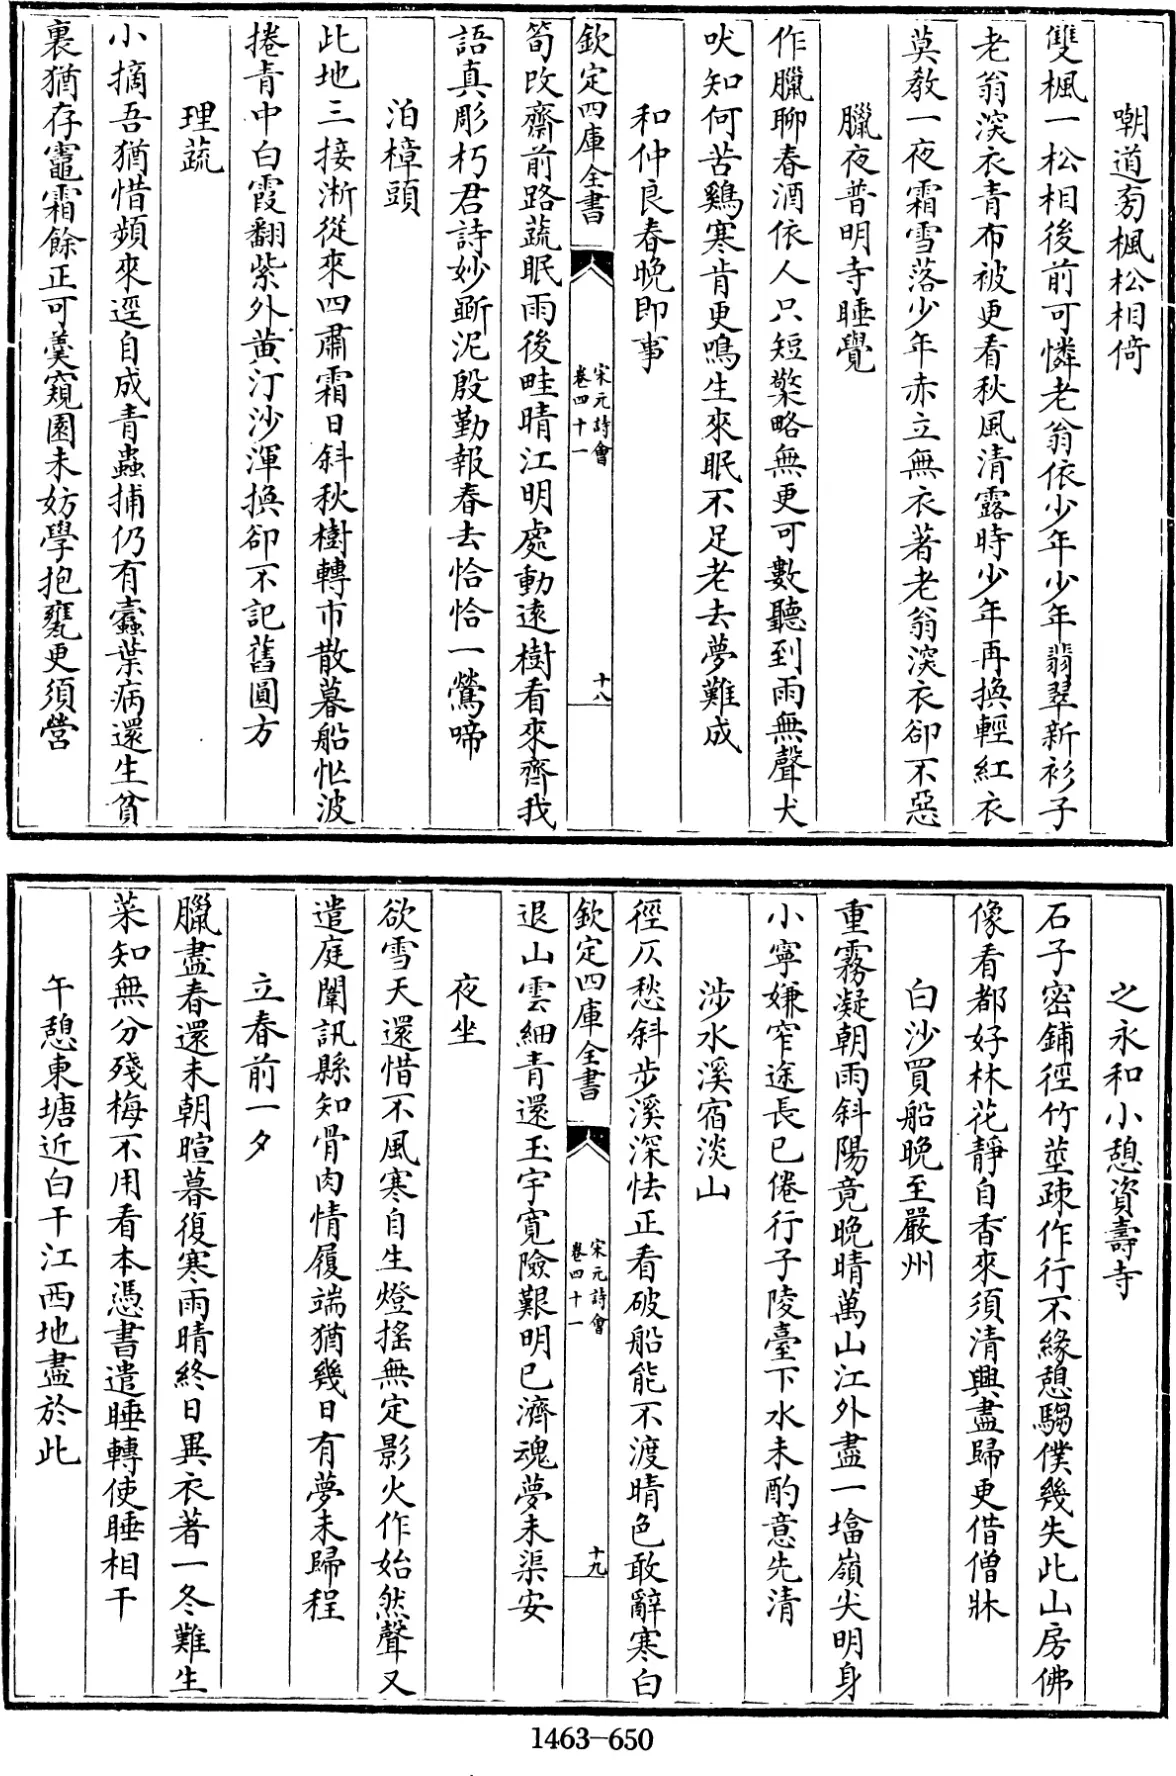 嘲道旁楓松相倚
雙楓一松相後前可憐老翁依少年少年翡翠新衫子
老翁深衣青布被更看秋風清露時少年再換輕紅衣
莫教一夜霜雪落少年赤立無衣著老翁深衣卻不惡
臘夜普明寺睡覺
作臘聊春酒依人只短檠略無更可數聽到雨無聲犬
吠知何苦鷄寒肯更鳴生來眠不足老去夢難成
和仲良春晚即事
欽定四庫全書
宋元詩會
卷四十一
十八
筍改齋前路蔬眠雨後畦晴江明處動遠樹看來齊我
語真彫朽君詩妙斲泥殷勤報春去恰恰一鶯啼
泊樟頭
此地三接淅從來四肅霜日斜秋樹轉市散暮船忙波
捲青中白霞翻紫外黄汀沙渾換卻不記舊圓方
理蔬
小摘吾猶惜頻來逕自成青蟲捕仍有蠹葉病還生貧
裏猶存䆴霜餘正可羹窺園未妨學抱甕更須營
之永和小憩資壽寺
石子密鋪徑竹莖疎作行不緣憩騶僕幾失此山房佛
像看都好林花靜自香來須清興盡歸更借僧牀
白沙買船晚至嚴州
重霧凝朝雨斜陽竟晚晴萬山江外盡一塔嶺尖明身
小寧嫌窄途長已倦行子陵臺下水未酌意先清
涉水溪宿淡山
徑仄愁斜步溪深怯正看破船能不渡晴色敢辭寒白
欽定四庫全書
宋元詩會
卷四十一
十九
退山雲細青還玉宇寛險艱明已濟魂夢未渠安
夜坐
欲雪天還惜不風寒自生燈搖無定影火作始然聲又
遣庭闈訊縣知骨肉情履端猶幾日有夢未歸程
立春前一夕
臘盡春還未朝暄暮復寒雨晴終日異衣著一冬難生
菜知無分殘梅不用看本憑書遣睡轉使睡相干
午憩東塘近白干江西地盡於此
1463-650